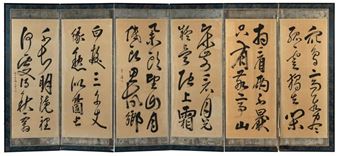 衆鳥高飛盡
孤雲獨去閑
相看兩不厭
只有敬亭山
牀前看月光
疑是地上霜
舉頭望山月
低頭思故鄉
白髮三千丈
緣愁似箇長
不知明鏡裡
何處得秋霜